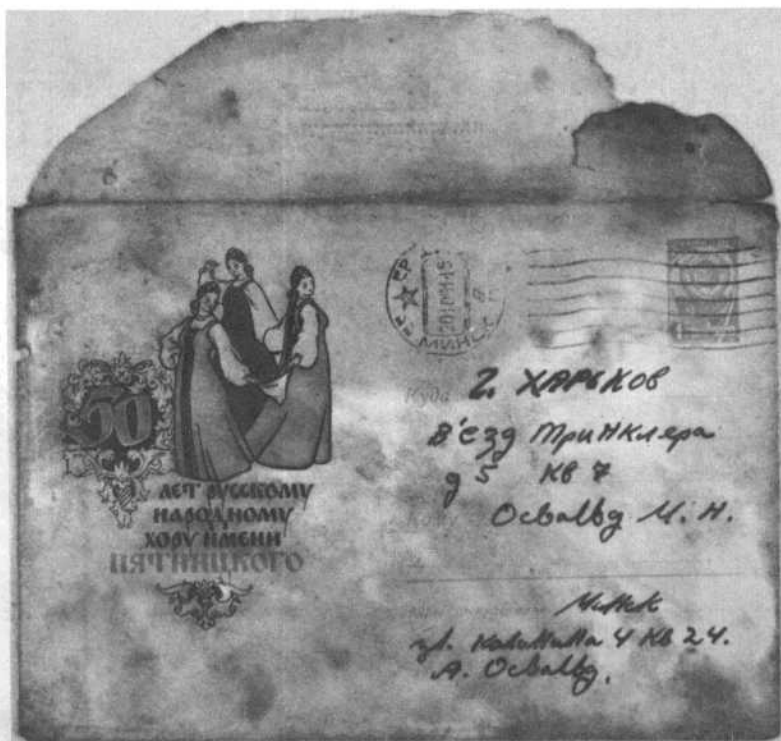 50
ЛЕТ РУССКОМУ
НАРОДНОМУ
ХОРУ ИМЕНИ
ПЯТНИЦКОГО
МИНСК
Куда
г. ХАРЬКОВ
В'езд Тринклера
д 5 кв 7
Освальд М. Н.
Минск
ул. Калинина 4 кв 24.
А. Освальд.